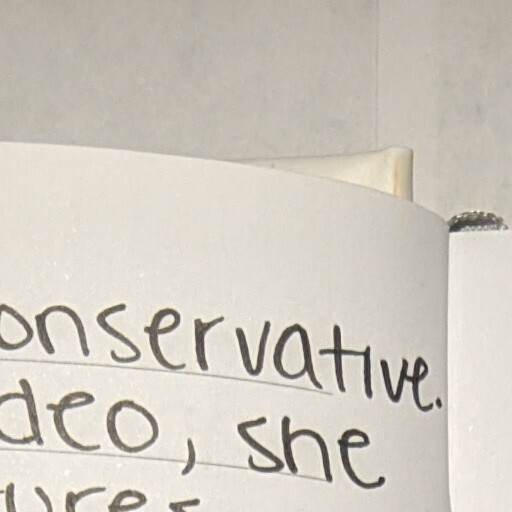 onservative.
deo, she
ures